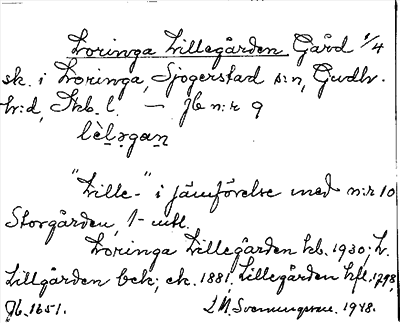 Loringa Lillegården Gård 1/4
sk. i Loringa, Sjogerstad s:n, Gudh.
h:d, Skb. l. — Jb n:r 9
lèlɘgan
"Lille-" i jämförelse med n:r 10
Storgården, 1- mtl.
Loringa Lillegården kb. 1930; L.
Lillgården bek; ek. 1881, Lillegården hfl. 1798,
Jb. 1651.